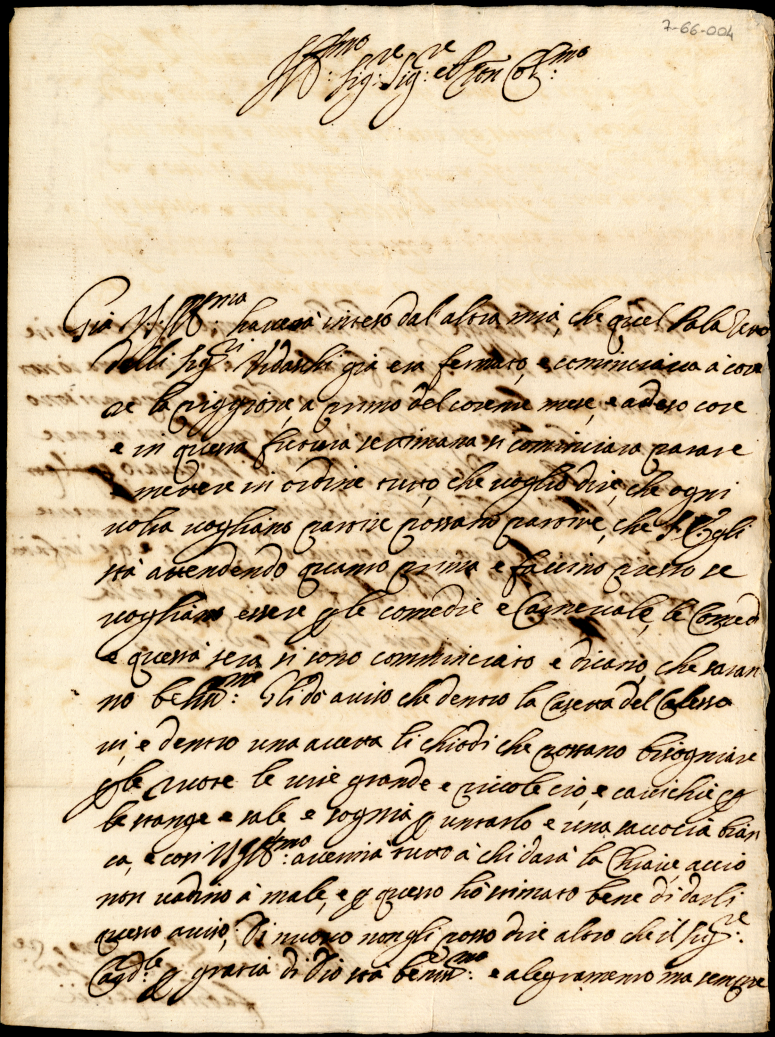 7-66-004
Ill:mo Sig:re Sig:re et Pron Col:mo
Già V.S. Ill:ma haverà inteso dal altra mia, che quel Palazzo
delli Sig:ri Vidaschi già era fermato, e cominciava à core
re la piggione, a primo del corente mese, e adesso core
e in questa futura settimana si cominciara parare
e mettere in ordine tutto, che voglio dire, che ogni
volta vogliano partire possano partire, che
stà attendendo quanto prima e faccino presto se
vogliano essere p le comedie e Carnevale, le Comed
e questa sera si sono comminciato e dicano, che saran
no beniss:mo Gli dò aviso che dentro la Casetta del Calesso
vi, e dentro una accetta li chiodi che possano bisogniare
p le ruote le vite grande e piccole cio, e cavichie p
le stange e sale e sognia p untarlo e una saccocia bian
ca, e con V.S. Ill:mo accennà tutto à chi darà la Chiave, acciò
non vadino à male, e p questo hò stimato bene di darli
questo aviso, di nuovo non gli posso dire altro che il Sig:re
Card:le p gratia di Dio stà beniss:mo e alegramente ma sempre